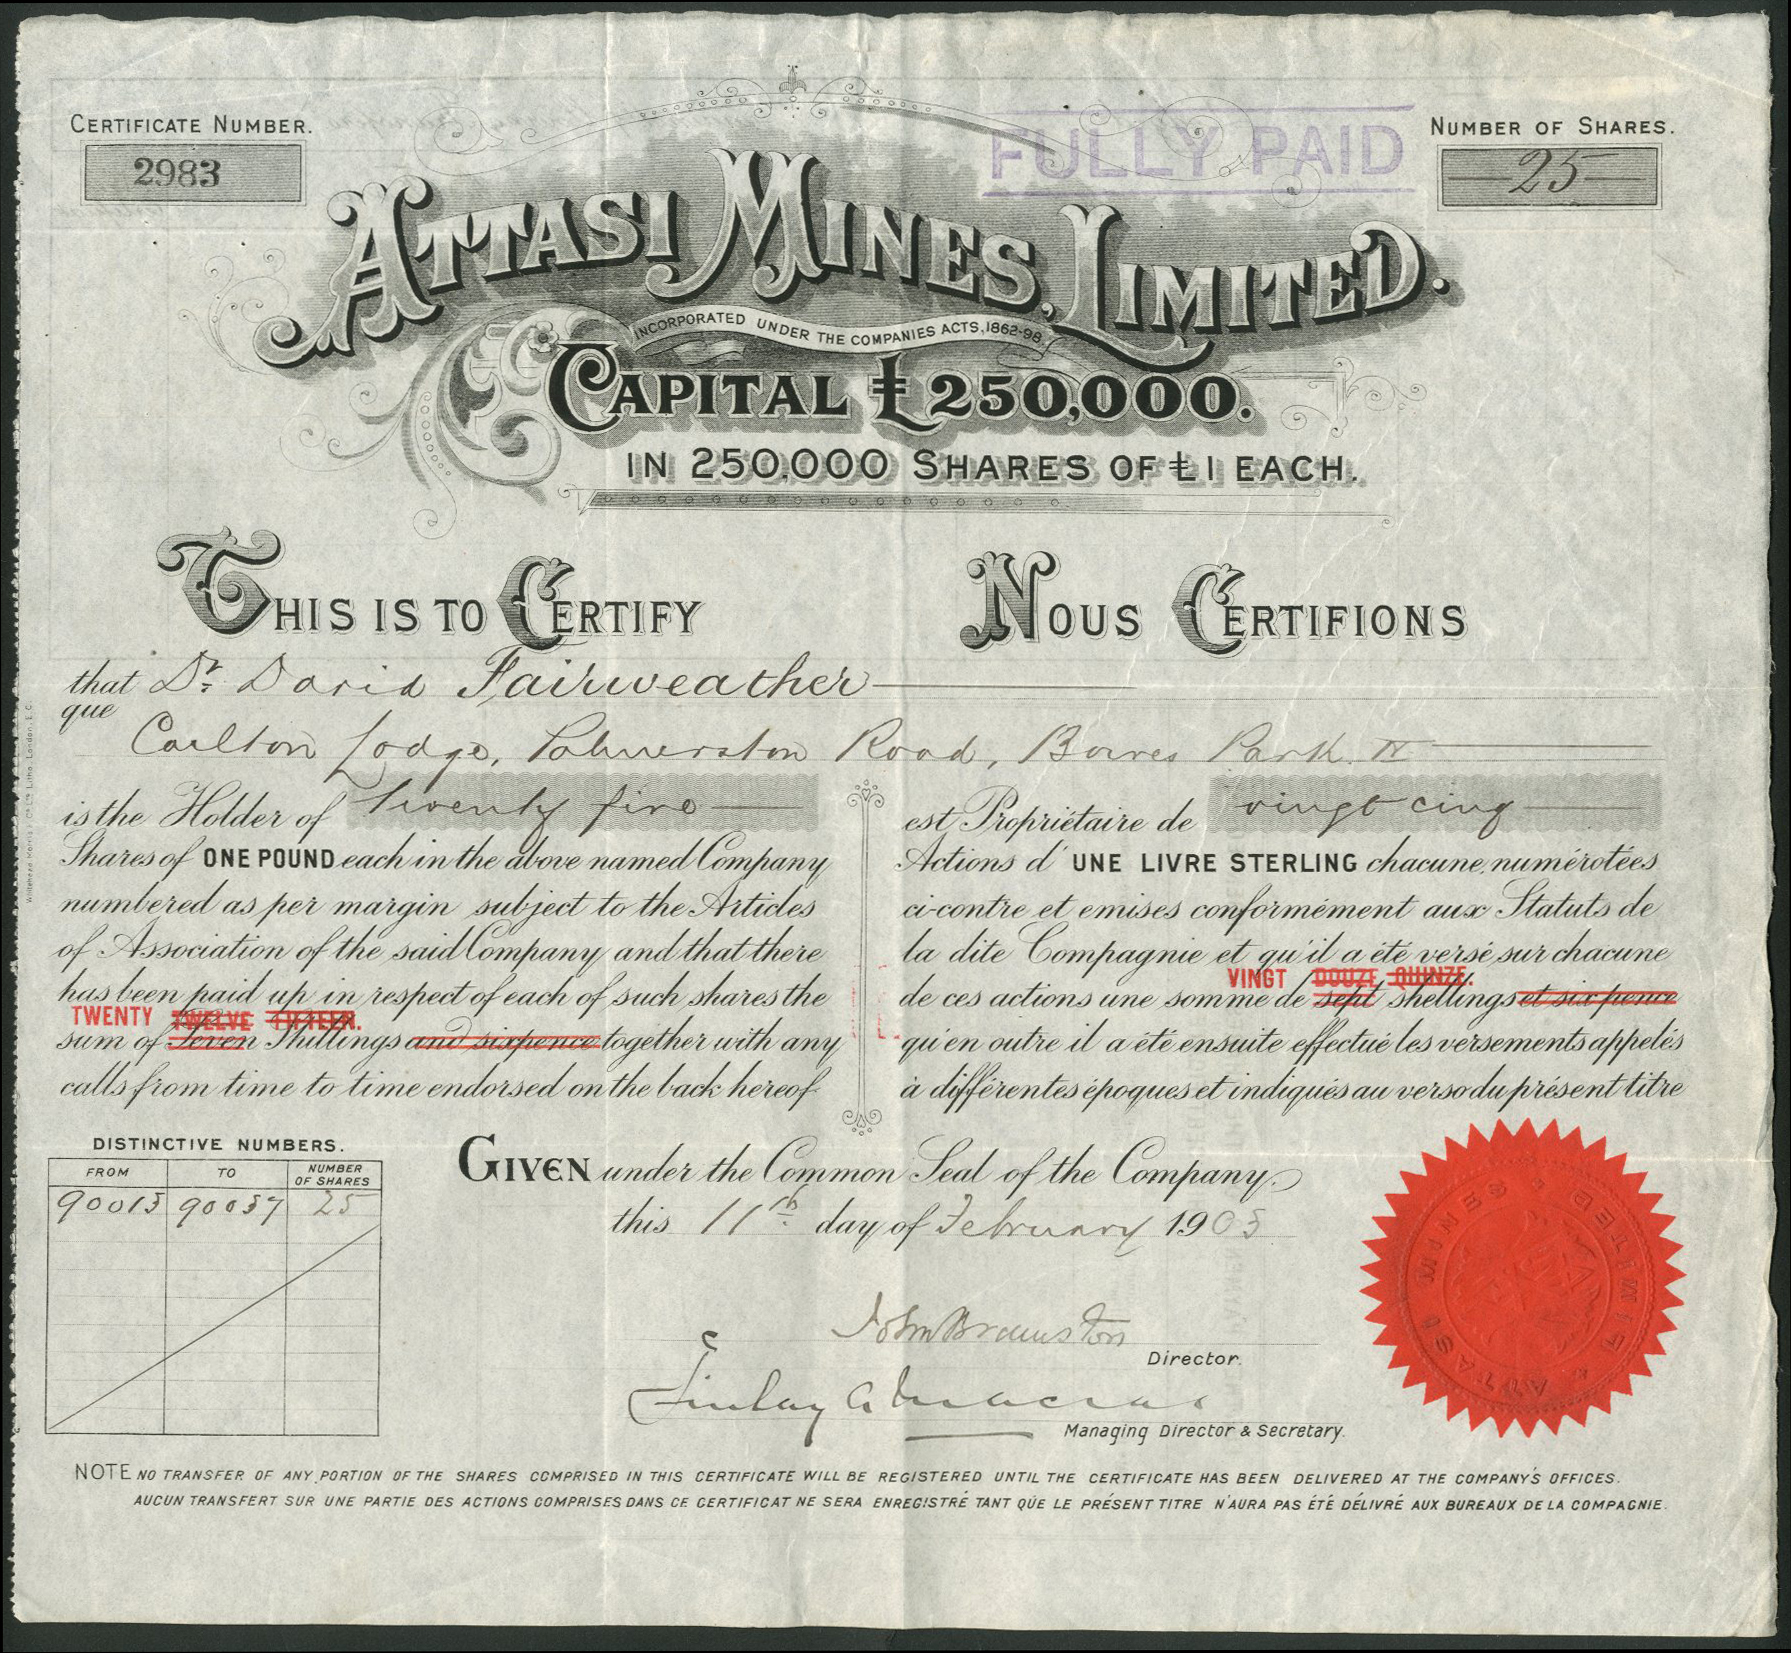 CERTIFICATE NUMBER.
2983
FULLY PAID
NUMBER OF SHARES.
25
ATTASI MINES, LIMITED.
INCORPORATED UNDER THE COMPANIES ACTS, 1862-98.
CAPITAL £250,000.
IN 250,000 SHARES OF £1 EACH.
THIS IS TO CERTIFY
NOUS CERTIFIONS
that Dr. David Fairweather
que
Carlton Lodge, Palmerston Road, Bowes Park N
is the Holder of twenty five
Shares of ONE POUND each in the above named Company
numbered as per margin subject to the Articles
of Association of the said Company and that there
has been paid up in respect of each of such shares the
TWENTY TWELVE FIFTEEN.
sum of Seven Shillings and sixpence together with any
calls from time to time endorsed on the back hereof
est Propriétaire de vingt cinq
Actions d' UNE LIVRE STERLING chacune, numérotées
ci-contre et emises conformément aux Statuts de
la dite Compagnie et qu'il a été versé sur chacune
VINGT DOUZE QUINZE.
de ces actions une somme de sept shellings et six pence
qu'en outre il a été ensuite effectué les versements appelés
à différentes époques et indiqués au verso du présent titre
DISTINCTIVE NUMBERS.
FROM TO NUMBER OF SHARES
90013 90037 25
GIVEN under the Common Seal of the Company.
this 11th day of February 1903
John Braunston
Director.
Finlay A Macrae
Managing Director & Secretary.
ATTASI MINES LIMITED
NOTE NO TRANSFER OF ANY PORTION OF THE SHARES COMPRISED IN THIS CERTIFICATE WILL BE REGISTERED UNTIL THE CERTIFICATE HAS BEEN DELIVERED AT THE COMPANY'S OFFICES.
AUCUN TRANSFERT SUR UNE PARTIE DES ACTIONS COMPRISES DANS CE CERTIFICAT NE SERA ENREGISTRÉ TANT QÚE LE PRÉSENT TITRE N'AURA PAS ÉTÉ DÉLIVRÉ AUX BUREAUX DE LA COMPAGNIE.